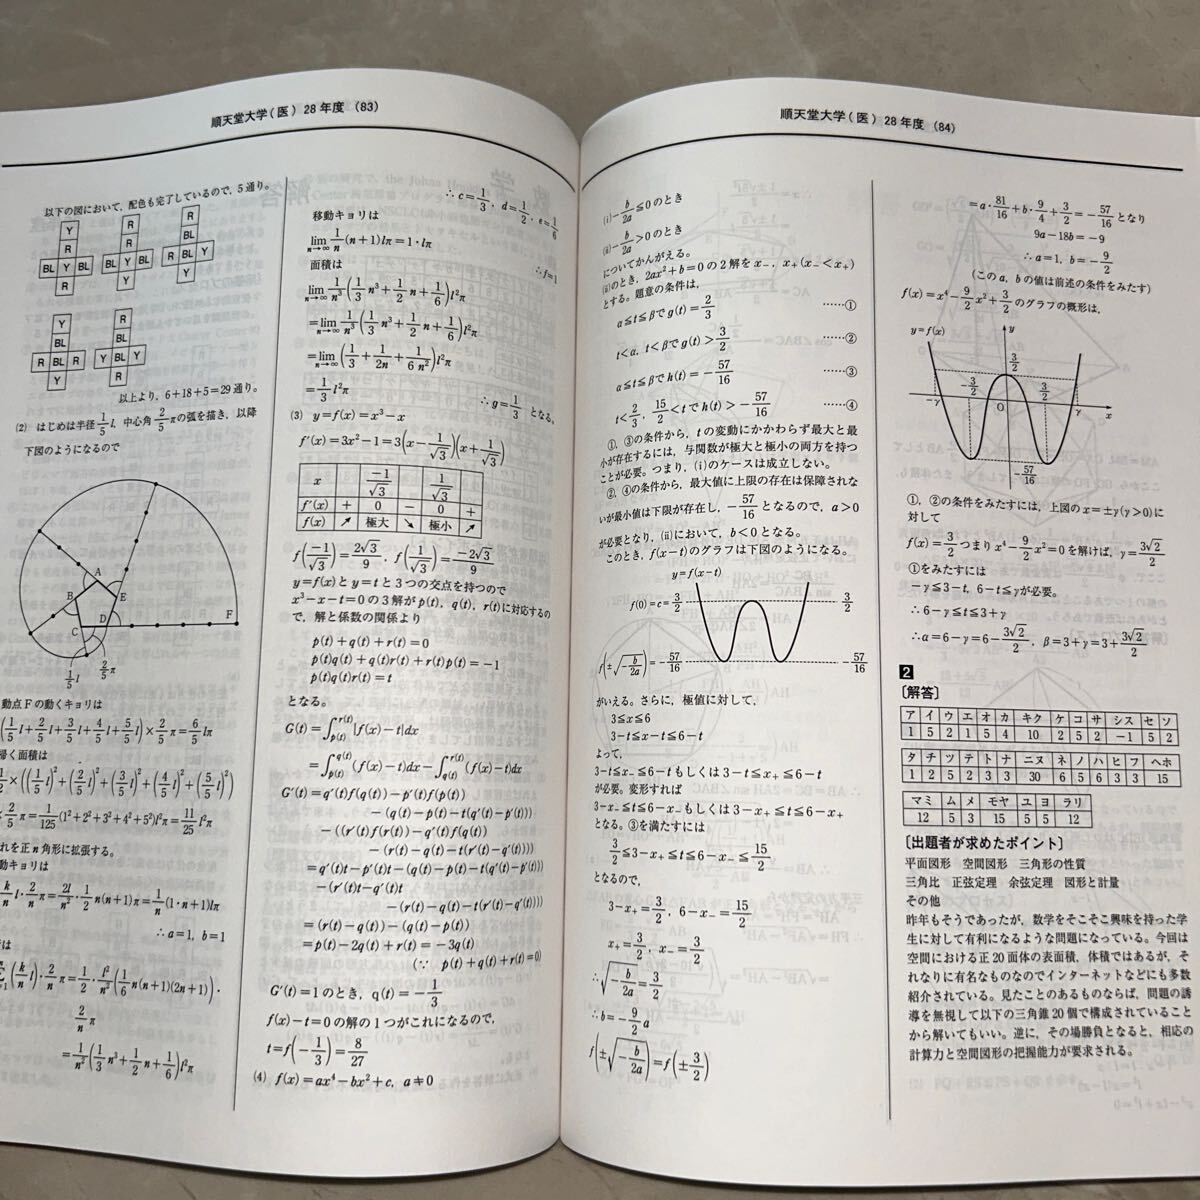 順天堂大学(医) 28年度 (83)
以下の図において, 配色も完了しているので, 5通り。
Y
R
BL Y BL
R
R
R
BL Y BL
Y
R
BL
R BL Y
Y
Y
BL
R BL R
Y
R
BL
Y BL Y
R
以上より, 6+18+5=29通り。
(2) はじめは半径1/5 l, 中心角2/5 πの弧を描き, 以降
下図のようになるので
A
B
E
C
D
F
1/5 l
2/5 π
動点Fの動くキョリは
(1/5 l+2/5 l+3/5 l+4/5 l+5/5 l)×2/5 π=6/5 lπ
く面積は
×((1/5 l)²+(2/5 l)²+(3/5 l)²+(4/5 l)²+(5/5 l)²)
2/5 π=1/125(1²+2²+3²+4²+5²)l²π=11/25 l²π
れを正n角形に拡張する。
動キョリは
k/n l・2/n π=2l/n²・1/2 n(n+1)π=1/n(1・n+1)lπ
∴a=1, b=1
は
(k/n l)²・2/n π=1/2・l²/n²(1/6 n(n+1)(2n+1))・
2/n π
=1/n²(1/3 n³+1/2 n+1/6)l²π
∴c=1/3, d=1/2, e=1/6
移動キョリは
lim n→∞ 1/n(n+1)lπ=1・lπ
∴f=1
面積は
lim n→∞ 1/n³(1/3 n³+1/2 n+1/6)l²π
=lim n→∞ 1/n³(1/3 n³+1/2 n+1/6)l²π
=lim n→∞(1/3+1/2n+1/6n²)l²π
=1/3 l²π
∴g=1/3 となる。
(3) y=f(x)=x³−x
f′(x)=3x²−1=3(x−1/√3)(x+1/√3)
x −1/√3 1/√3
f′(x) + 0 − 0 +
f(x) ↗ 極大 ↘ 極小 ↗
f(−1/√3)=2√3/9, f(1/√3)=−2√3/9
y=f(x)とy=tと3つの交点を持つので
x³−x−t=0の3解がp(t), q(t), r(t)に対応するの
で, 解と係数の関係より
p(t)+q(t)+r(t)=0
p(t)q(t)+q(t)r(t)+r(t)p(t)=−1
p(t)q(t)r(t)=t
となる。
G(t)=∫p(t)r(t)|f(x)−t|dx
=∫p(t)q(t)(f(x)−t)dx−∫q(t)r(t)(f(x)−t)dx
G′(t)=q′(t)f(q(t))−p′(t)f(p(t))
−(q(t)−p(t)−t(q′(t)−p′(t)))
−((r′(t)f(r(t))−q′(t)f(q(t))
−(r(t)−q(t)−t(r′(t)−q′(t))))
=q′(t)t−p′(t)t−(q(t)−p(t)−t(q′(t)−p′(t)))
−(r′(t)t−q′(t)t
−(r(t)−q(t)−t(r′(t)−q′(t))))
=(r(t)−q(t))−(q(t)−p(t))
=p(t)−2q(t)+r(t)=−3q(t)
(∵ p(t)+q(t)+r(t)=0)
G′(t)=1のとき, q(t)=−1/3
f(x)−t=0の解の1つがこれになるので,
t=f(−1/3)=8/27
(4) f(x)=ax⁴−bx²+c, a≠0
順天堂大学(医) 28年度 (84)
(i)−b/2a≦0のとき
(ii)−b/2a>0のとき
についてかんがえる。
(ii)のとき, 2ax²+b=0の2解をx₋, x₊(x₋<x₊)
とする。題意の条件は,
α≦t≦βでg(t)=2/3 ……①
t<α, t<βでg(t)>3/2 ……②
α≦t≦βでh(t)=−57/16 ……③
t<2/3, 15/2<tでh(t)>−57/16 ……④
①, ③の条件から, tの変動にかかわらず最大と最
小が存在するには, 与関数が極大と極小の両方を持つ
ことが必要。つまり, (i)のケースは成立しない。
②, ④の条件から, 最大値に上限の存在は保障されな
いが最小値は下限が存在し, −57/16となるので, a>0
が必要となり, (ii)において, b<0となる。
このとき, f(x−t)のグラフは下図のようになる。
y=f(x−t)
f(0)=c=3/2
3/2
f(±√−b/2a)=−57/16
−57/16
がいえる。さらに, 極値に対して,
3≦x≦6
3−t≦x−t≦6−t
よって,
3−t≦x₋≦6−tもしくは3−t≦x₊≦6−t
が必要。変形すれば
3−x₋≦t≦6−x₋もしくは3−x₊≦t≦6−x₊
となる。③を満たすには
3/2≦3−x₊≦t≦6−x₋≦15/2
となるので,
3−x₊=3/2, 6−x₋=15/2
x₊=3/2, x₋=3/2
∴√−b/2a=3/2
∴b=−9/2 a
f(±√−b/2a)=f(±3/2)
=a・81/16+b・9/4+3/2=−57/16となり
9a−18b=−9
∴a=1, b=−9/2
(このa, bの値は前述の条件をみたす)
f(x)=x⁴−9/2 x²+3/2のグラフの概形は,
y=f(x)
y
3/2
−3/2
3/2
−γ
O
γ
x
−57/16
①, ②の条件をみたすには, 上図のx=±γ(γ>0)に
対して
f(x)=3/2つまりx⁴−9/2 x²=0を解けば, γ=3√2/2
①をみたすには
−γ≦3−t, 6−t≦γが必要。
∴6−γ≦t≦3+γ
∴α=6−γ=6−3√2/2, β=3+γ=3+3√2/2
2
〔解答〕
ア イ ウ エ オ カ キク ケ コ サ シス セ ソ
1 5 2 1 5 4 10 2 5 2 −1 5 2
タ チ ツ テ ト ナ ニヌ ネ ノ ハ ヒ フ ヘホ
1 2 5 2 3 3 30 6 5 6 3 3 15
マミ ム メ モヤ ユ ヨ ラリ
12 5 3 15 5 5 12
〔出題者が求めたポイント〕
平面図形 空間図形 三角形の性質
三角比 正弦定理 余弦定理 図形と計量
その他
昨年もそうであったが, 数学をそこそこ興味を持った学
生に対して有利になるような問題になっている。今回は
空間における正20面体の表面積, 体積ではあるが, そ
れなりに有名なものなのでインターネットなどにも多数
紹介されている。見たことのあるものならば, 問題の誘
導を無視して以下の三角錐20個で構成されていること
から解いてもいい。逆に, その場勝負となると, 相応の
計算力と空間図形の把握能力が要求される。